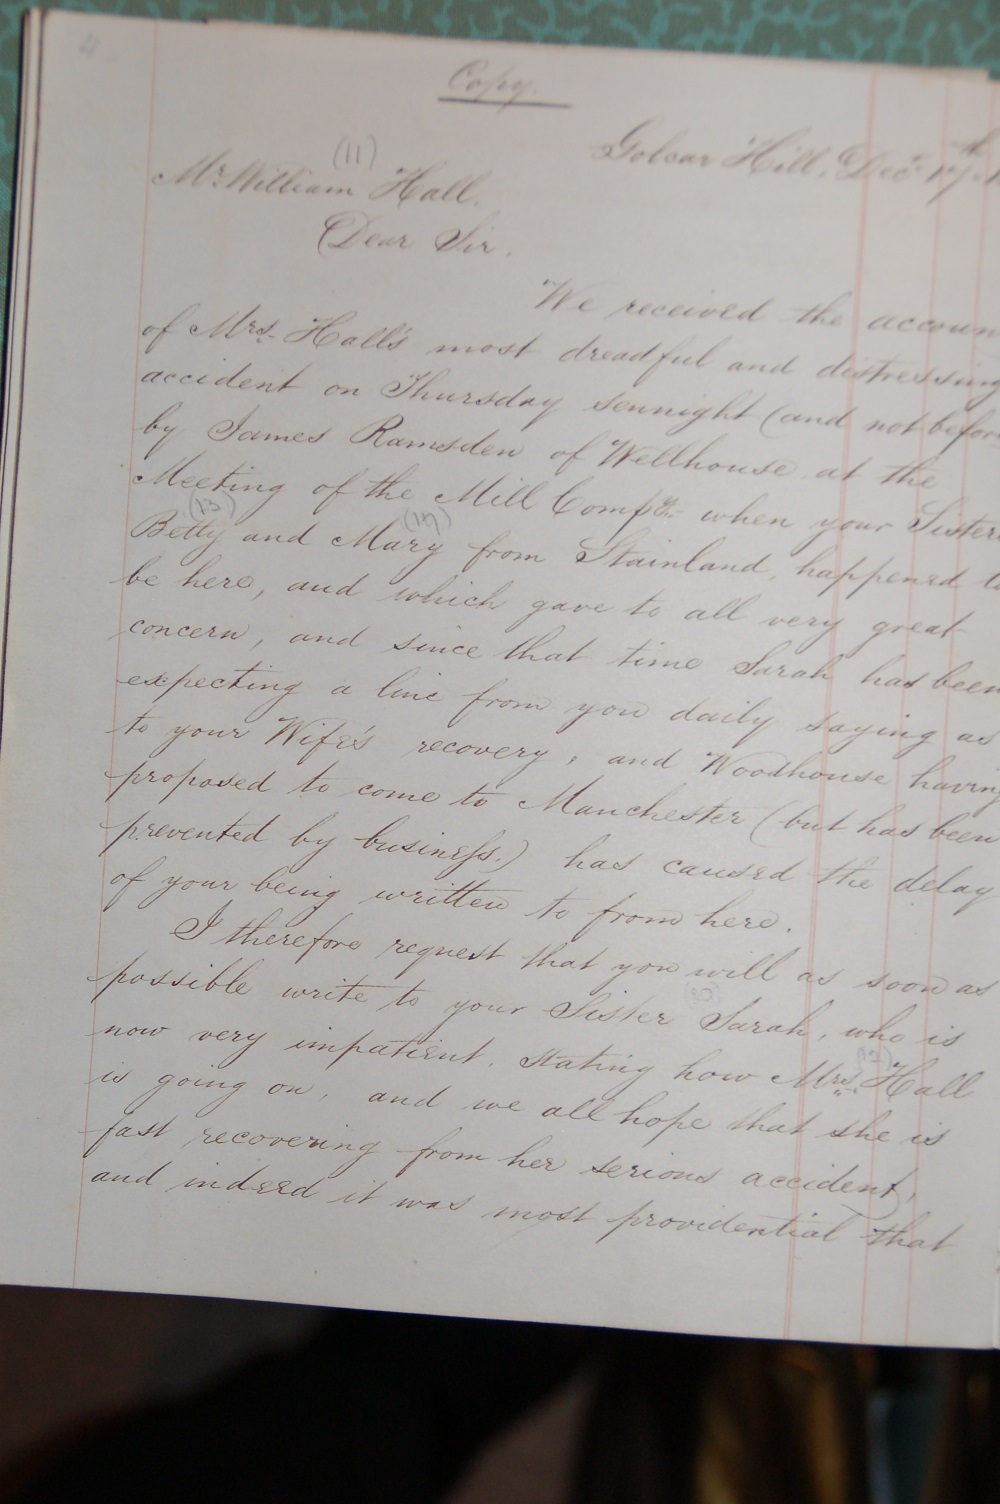 Copy.
Golcar Hill, Decr 17th
(11)
Mr. William Hall.
Dear Sir.
We received the accoun
of Mrs. Hall's most dreadful and distressing
accident on Thursday sennight (and not before
by James Ramsden of Wellhouse at the
Meeting of the Mill Compy. when your Sisters
(13) (14)
Betty and Mary from Stainland, happened to
be here, and which gave to all very great
concern, and since that time Sarah has been
expecting a line from you daily saying as
to your Wife's recovery, and Woodhouse having
proposed to come to Manchester (but has been
prevented by business.) has caused the delay
of your being written to from here.
I therefore request that you will as soon as
possible write to your Sister Sarah, who is
now very impatient. Stating how Mrs. Hall
is going on, and we all hope that she is
fast recovering from her serious accident,
and indeed it was most providential that